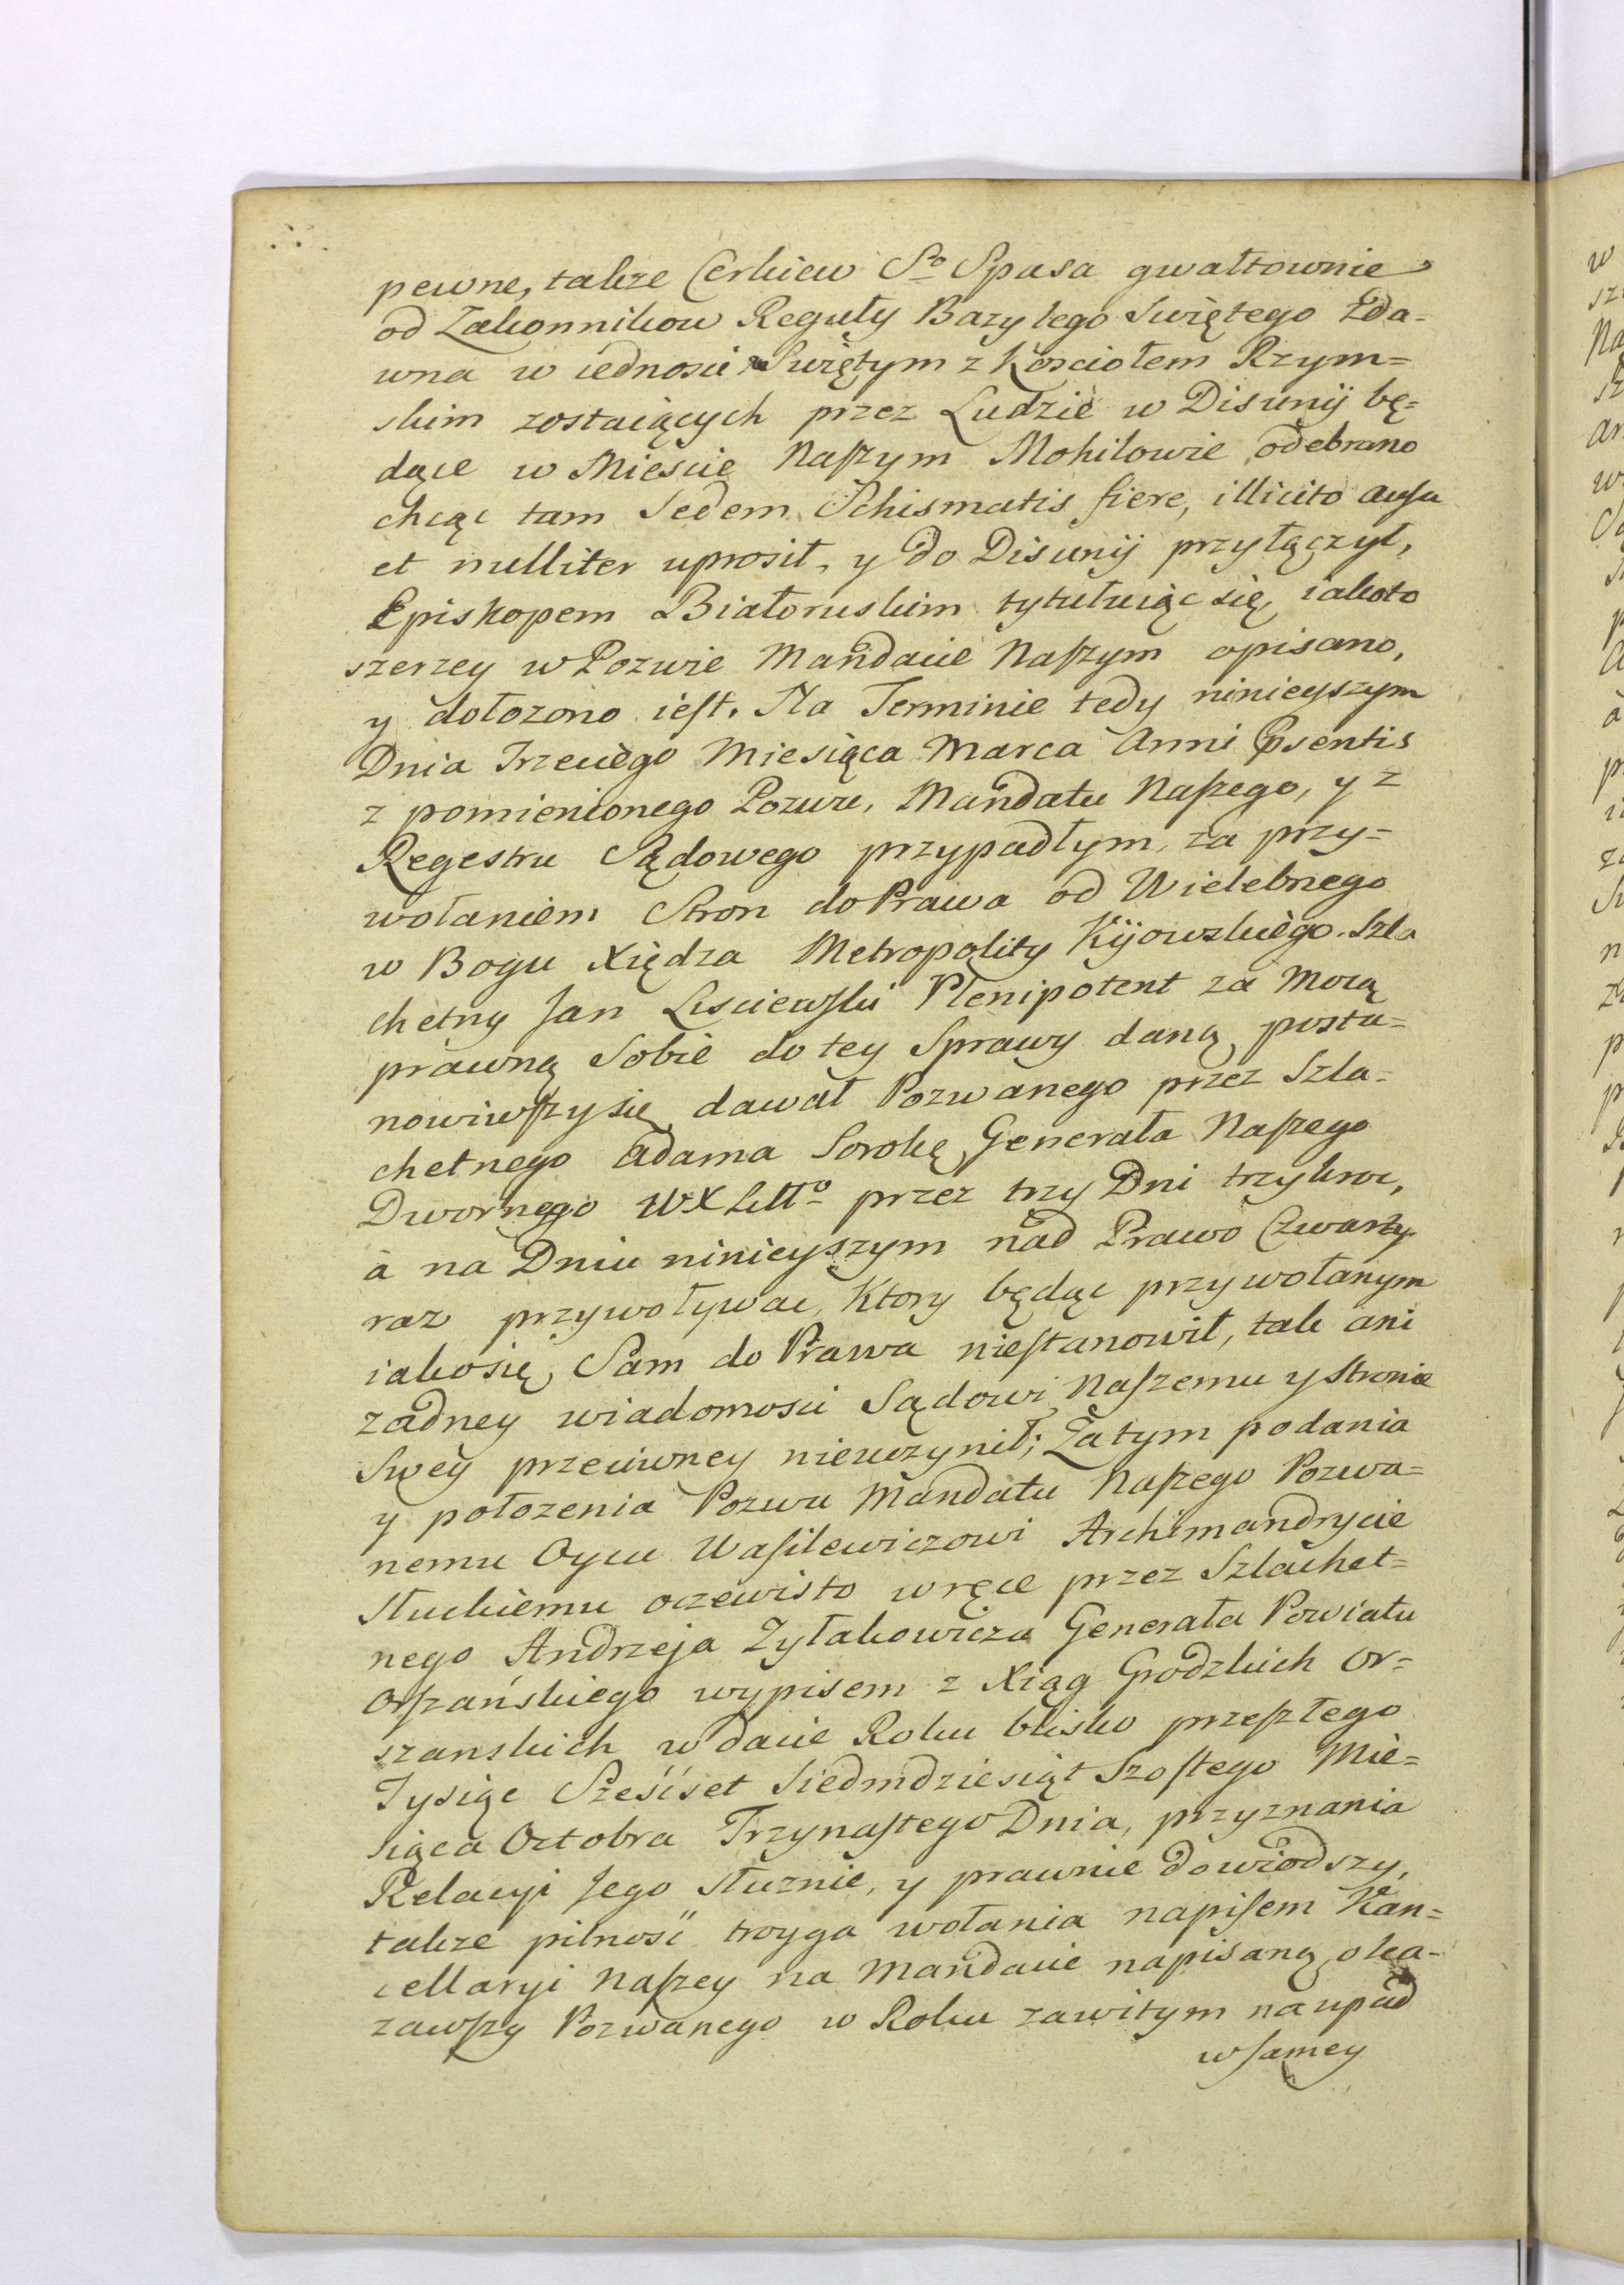 pewne, takze Cerkiew Sº Spasa gwałtownie
od Zakonnikow Reguły Bazylego Swiętego zda-
wna w iednosci Swiętym z Kosciołem Rzym=
skim zostaiących przez Ludzie w Disunij bę=
dące w Miescie Naszym Mohilowie odebrano
chcąc tam Sedem Schismatis fiere, illicito ausu
et nulliter uprosił, y do Disunij przyłączył,
Episkopem Białoruskim tytułuiąc się, iakoto
szerzey w Pozwie Mandacie Naszym opisano,
y dołozono iest. Na Terminie tedy ninieyszym
Dnia Trzeciego Miesiąca Marca Anni Psentis
z pomienionego Pozwu, Mandatu Naszego, y z
Regestru Sądowego przypadłym, za przy=
wołaniem Stron do Prawa od Wielebnego
w Bogu Xiędza Metropolity Kijowskiego Szla
chetny Jan Lisciewski Plenipotent za Mocą
prawną Sobie do tey Sprawy daną posta=
nowiwszy się dawał Pozwanego przez Szla=
chetnego Adama Sorokę Generała Naszego
Dwornego WXLittº przez trzy Dni trzykroc,
à na Dniu ninieyszym nad Prawo Czwarty
raz przywoływac, Ktory będąc przywołanym
iako się Sam do Prawa niestanowił, tak ani
zadney wiadomosci Sądowi Naszemu y Stronie
Swey przeciwney nieuczynił; Zatym podania
y położenia Pozwu Mandatu Naszego Pozwa=
nemu Oycu Wasilewiczowi Archimandrycie
Słuckiemu oczewisto w ręce przez Szlachet=
nego Andrzeja Zyłakowicza Generała Powiatu
Orszańskiego wypisem z Xiąg Grodzkich Or=
szanskich w dacie Roku blisko przeszłego
Tysiąc Sześćset Siedmdziesiąt Szostego Mie=
siąca Octobra Trzynastego Dnia, przyznania
Relacyi Jego słusznie, y prawnie dowiodszy,
takze pilność troyga wołania napisem Kan=
cellaryi Naszey na Mandacie napisaną oka-
zawszy Pozwanego w Roku zawitym na upad
w samey